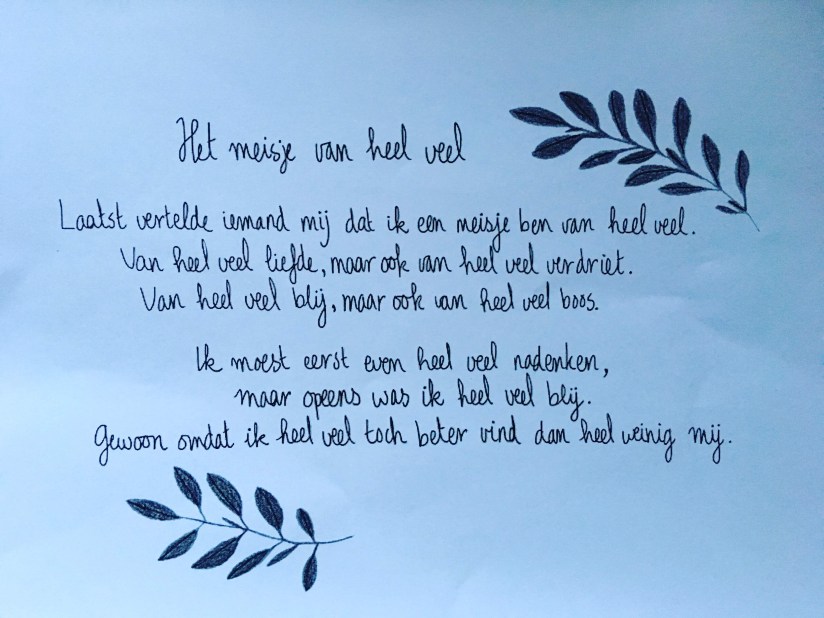 Het meisje van heel veel
Laatst vertelde iemand mij dat ik een meisje ben van heel veel.
Van heel veel liefde, maar ook van heel veel verdriet.
Van heel veel blij, maar ook van heel veel boos.
Ik moest eerst even heel veel nadenken,
maar opeens was ik heel veel blij.
Gewoon omdat ik heel veel toch beter vind dan heel weinig mij.